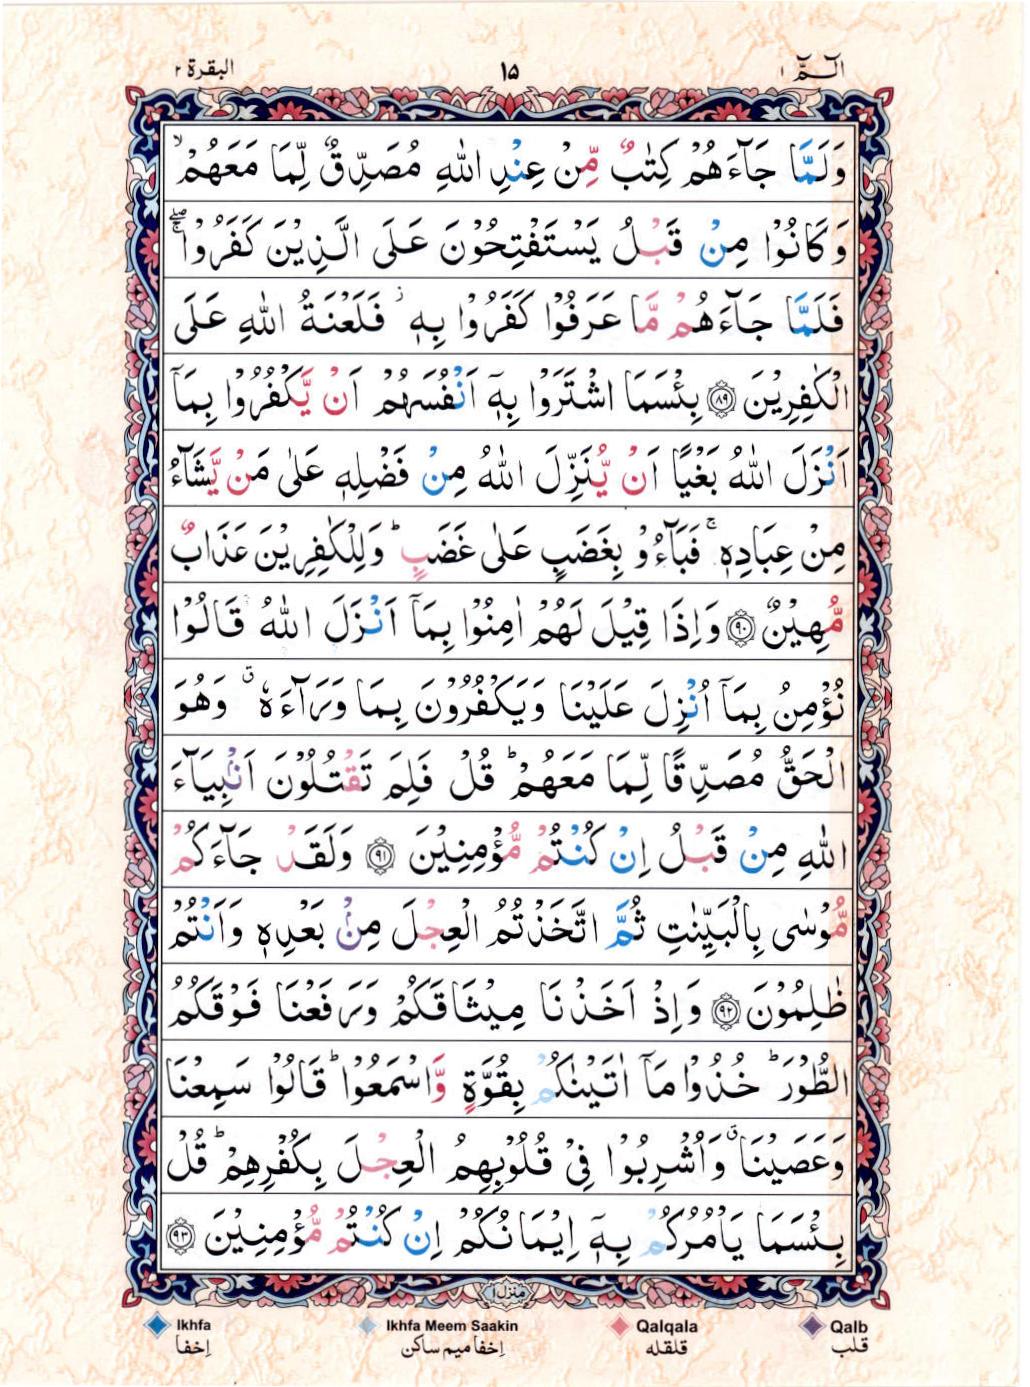 الٓمّٓ ١ ١٥ البقرة ٢
وَلَمَّا جَآءَهُمْ كِتٰبٌ مِّنْ عِنْدِ اللّٰهِ مُصَدِّقٌ لِّمَا مَعَهُمْ ۙ
وَكَانُوْا مِنْ قَبْلُ يَسْتَفْتِحُوْنَ عَلَى الَّذِيْنَ كَفَرُوْا ۚۖ
فَلَمَّا جَآءَهُمْ مَّا عَرَفُوْا كَفَرُوْا بِهٖ ؗ فَلَعْنَةُ اللّٰهِ عَلَى
الْكٰفِرِيْنَ ﴿٨٩﴾ بِئْسَمَا اشْتَرَوْا بِهٖٓ اَنْفُسَهُمْ اَنْ يَّكْفُرُوْا بِمَآ
اَنْزَلَ اللّٰهُ بَغْيًا اَنْ يُّنَزِّلَ اللّٰهُ مِنْ فَضْلِهٖ عَلٰى مَنْ يَّشَآءُ
مِنْ عِبَادِهٖ ۚ فَبَآءُوْ بِغَضَبٍ عَلٰى غَضَبٍ ؕ وَلِلْكٰفِرِيْنَ عَذَابٌ
مُّهِيْنٌ ﴿٩٠﴾ وَاِذَا قِيْلَ لَهُمْ اٰمِنُوْا بِمَآ اَنْزَلَ اللّٰهُ قَالُوْا
نُؤْمِنُ بِمَآ اُنْزِلَ عَلَيْنَا وَيَكْفُرُوْنَ بِمَا وَرَآءَهٗ ۗ وَهُوَ
الْحَقُّ مُصَدِّقًا لِّمَا مَعَهُمْ ؕ قُلْ فَلِمَ تَقْتُلُوْنَ اَنْۢبِيَآءَ
اللّٰهِ مِنْ قَبْلُ اِنْ كُنْتُمْ مُّؤْمِنِيْنَ ﴿٩١﴾ وَلَقَدْ جَآءَكُمْ
مُّوْسٰى بِالْبَيِّنٰتِ ثُمَّ اتَّخَذْتُمُ الْعِجْلَ مِنْۢ بَعْدِهٖ وَاَنْتُمْ
ظٰلِمُوْنَ ﴿٩٢﴾ وَاِذْ اَخَذْنَا مِيْثَاقَكُمْ وَرَفَعْنَا فَوْقَكُمُ
الطُّوْرَ ؕ خُذُوْا مَآ اٰتَيْنٰكُمْ بِقُوَّةٍ وَّاسْمَعُوْا ؕ قَالُوْا سَمِعْنَا
وَعَصَيْنَا ۗ وَاُشْرِبُوْا فِيْ قُلُوْبِهِمُ الْعِجْلَ بِكُفْرِهِمْ ؕ قُلْ
بِئْسَمَا يَاْمُرُكُمْ بِهٖٓ اِيْمَانُكُمْ اِنْ كُنْتُمْ مُّؤْمِنِيْنَ ﴿٩٣﴾
منزل ١
Ikhfa Ikhfa Meem Saakin Qalqala Qalb
اِخفا اِخفا میم ساکن قلقله قلب